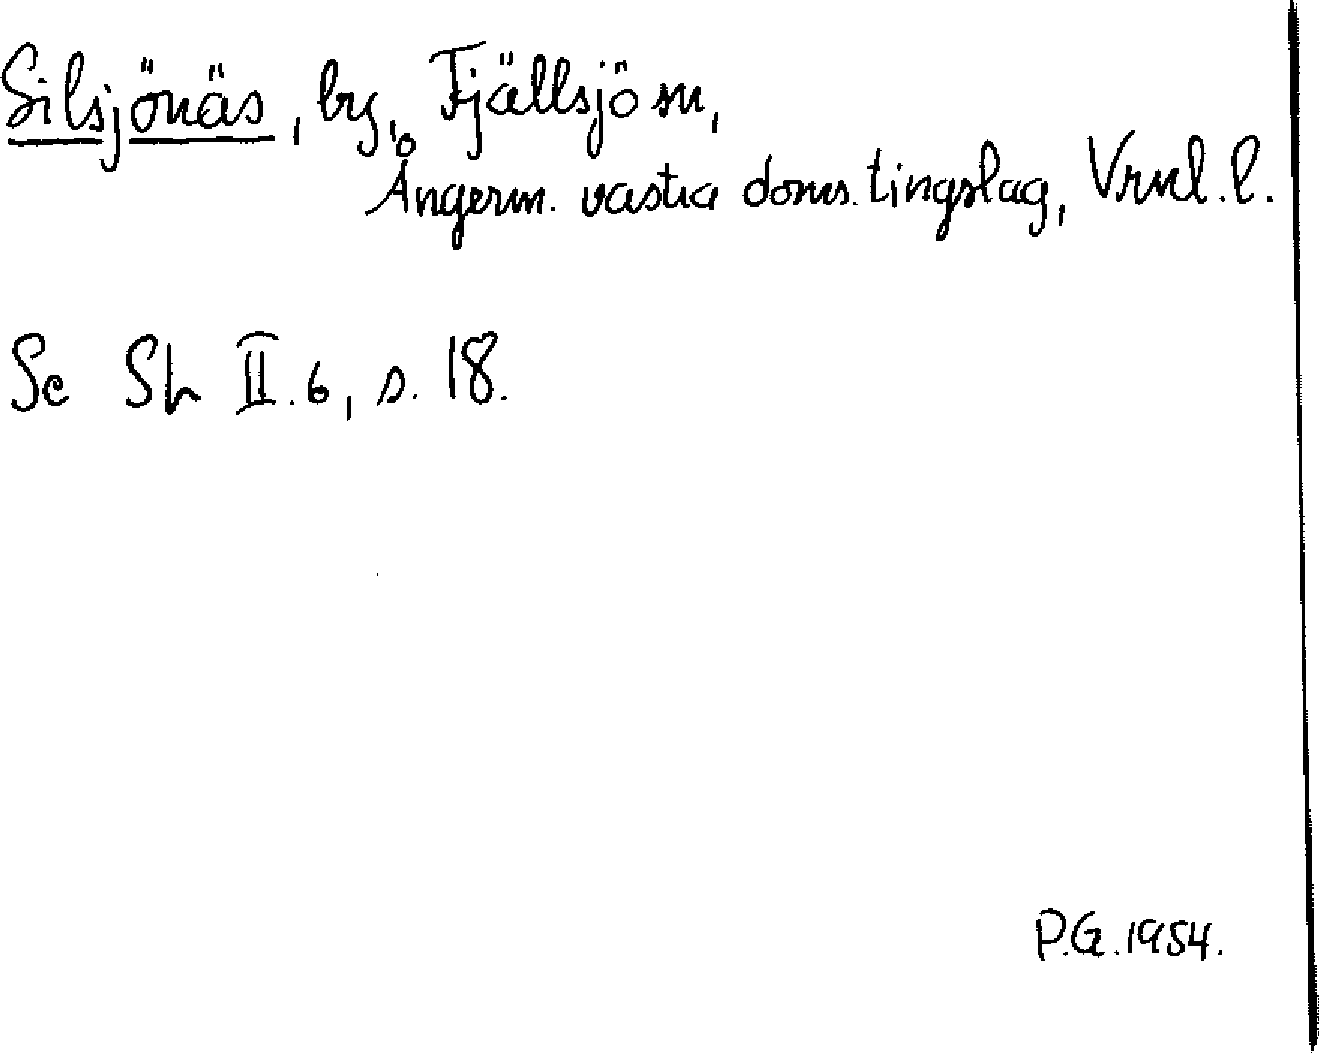 Silsjönäs, by, Fjällsjö sn,
Ångerm. västra doms. tingslag, Vrnl. l.
Se Sh II.6, s. 18.
P.G. 1954.